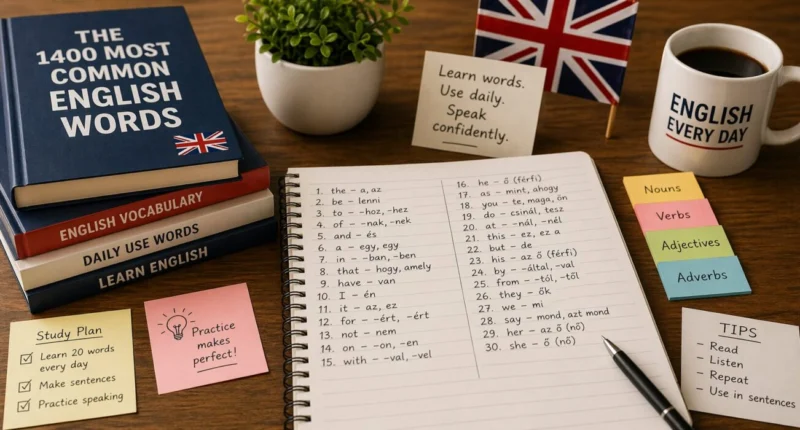 THE
1400 MOST
COMMON
ENGLISH
WORDS
ENGLISH VOCABULARY
DAILY USE WORDS
LEARN ENGLISH
Learn words.
Use daily.
Speak
confidently.
ENGLISH
EVERY DAY
1. the – a, az
2. be – lenni
3. to – -hoz, -hez
4. of – -nak, -nek
5. and – és
6. a – egy, egy
7. in – -ban, -ben
8. that – hogy, amely
9. have – van
10. I – én
11. it – az, ez
12. for – -ért, -ért
13. not – nem
14. on – -on, -en
15. with – -val, -vel
16. he – ő (férfi)
17. as – mint, ahogy
18. you – te, maga, ön
19. do – csinál, tesz
20. at – -nál, -nél
21. this – ez, ez a
22. but – de
23. his – az ő (férfi)
24. by – -által, -val
25. from – -tól, -től
26. they – ők
27. we – mi
28. say – mond, azt mond
29. her – az ő (nő)
30. she – ő (nő)
Nouns
Verbs
Adjectives
Adverbs
Study Plan
Learn 20 words
every day
Make sentences
Practice speaking
Practice
makes
perfect!
TIPS
- Read
- Listen
- Repeat
- Use in sentences